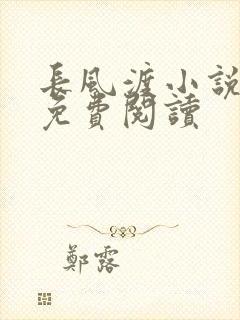 長風渡小說
免費閱讀
鄭露